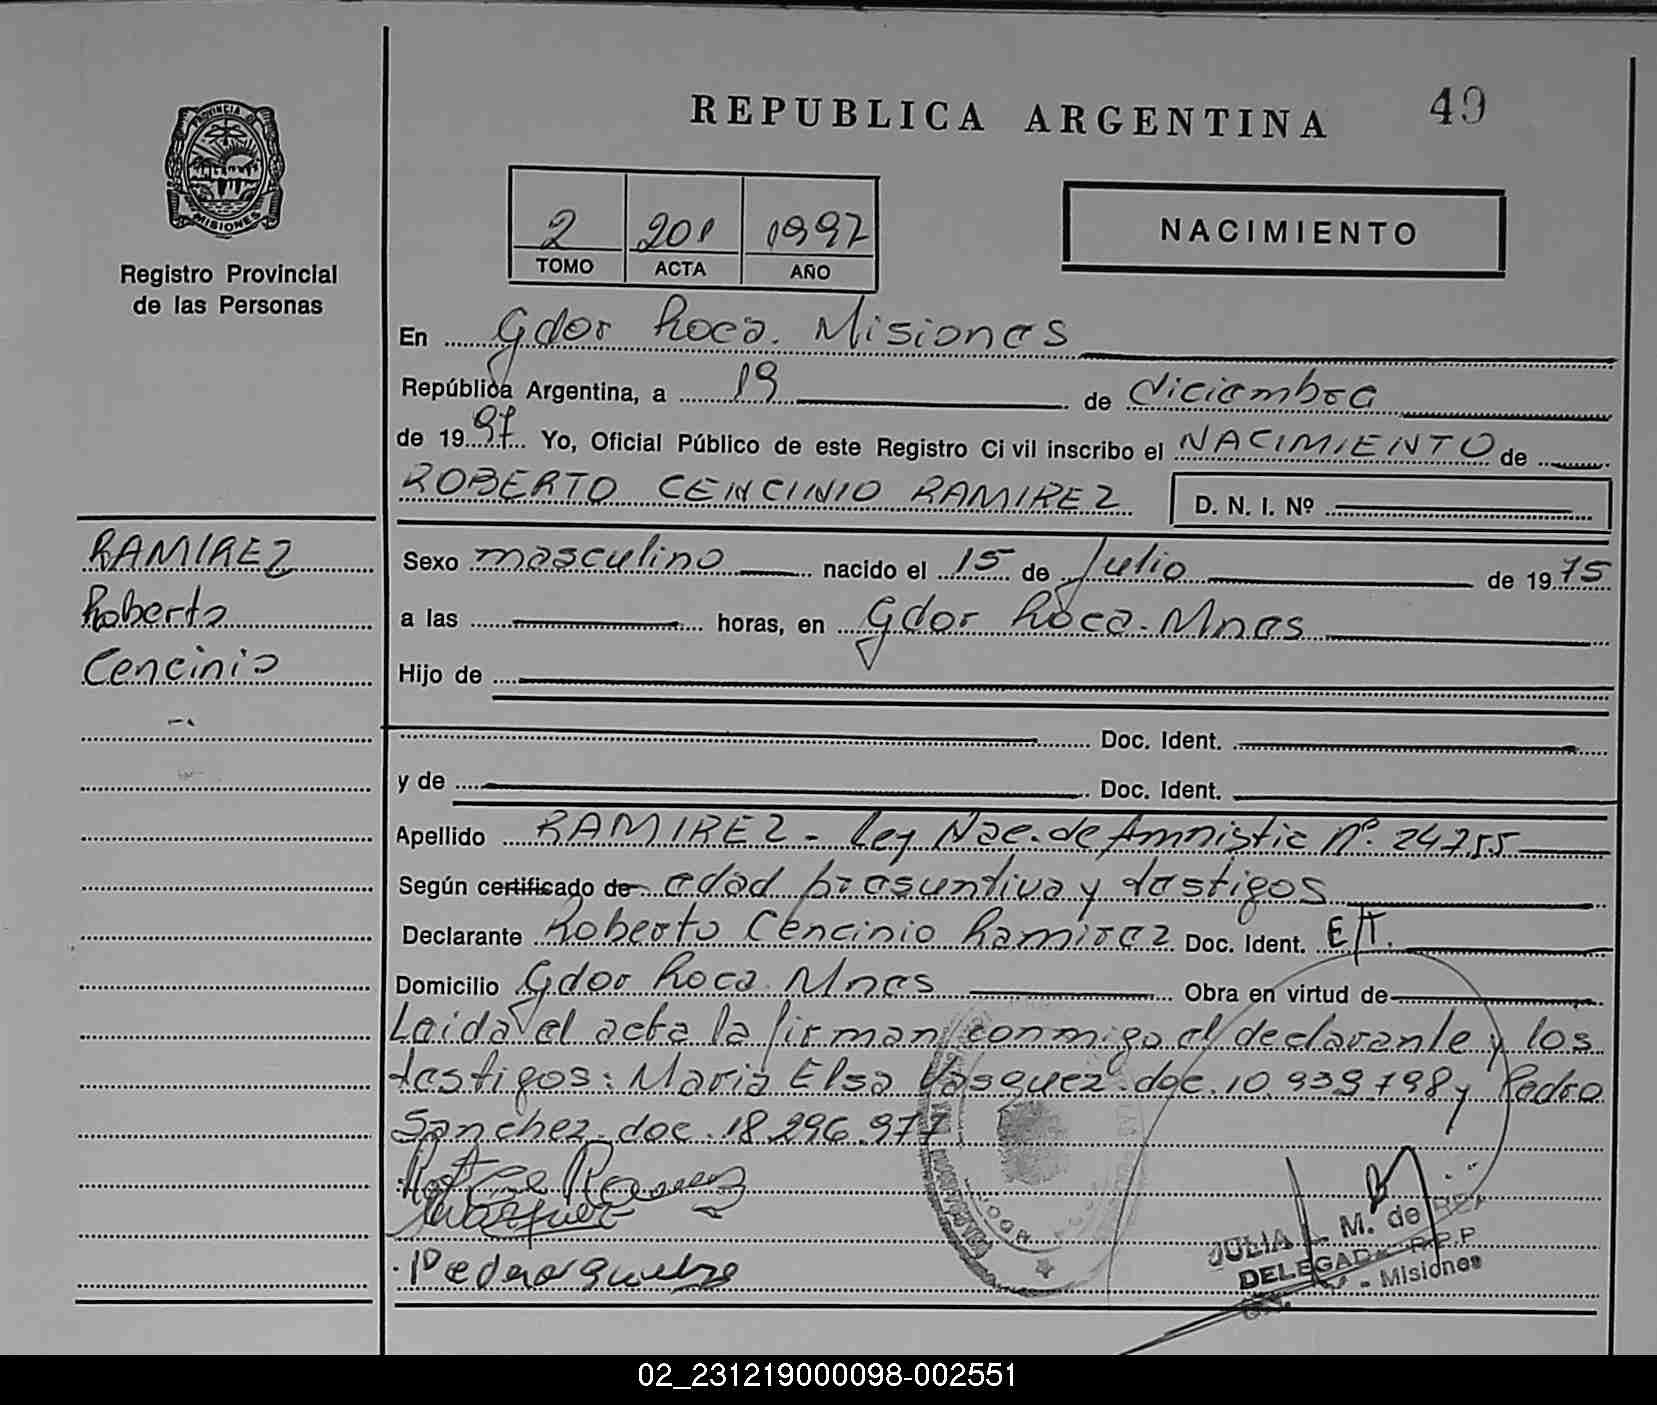 REPUBLICA ARGENTINA 49
PROVINCIA DE
MISIONES
Registro Provincial
de las Personas
2 201 1997
TOMO ACTA AÑO
NACIMIENTO
En Gdor Roca. Misiones
República Argentina, a 19 de diciembre
de 19 97 Yo, Oficial Público de este Registro Ci vil inscribo el NACIMIENTO de
ROBERTO CENCINIO RAMIREZ D. N. I. Nº
RAMIREZ
Roberto
Cencinio
Sexo masculino nacido el 15 de Julio de 19 75
a las horas, en Gdor Roca. Mnes
Hijo de
Doc. Ident.
y de Doc. Ident.
Apellido RAMIREZ - Ley Nac. de Amnistia Nº. 24755
Según certificado de edad presuntiva y testigos
Declarante Roberto Cencinio Ramirez Doc. Ident. E/T.
Domicilio Gdor Roca Mnes Obra en virtud de
Leida el acta la firman conmigo el declarante y los
testigos: Maria Elsa Vasquez. doc. 10.939.798 y Pedro
Sanchez doc. 18.296.977
JULIA L. M. de
DELEGADA R.P.P
- Misiones
02_231219000098-002551